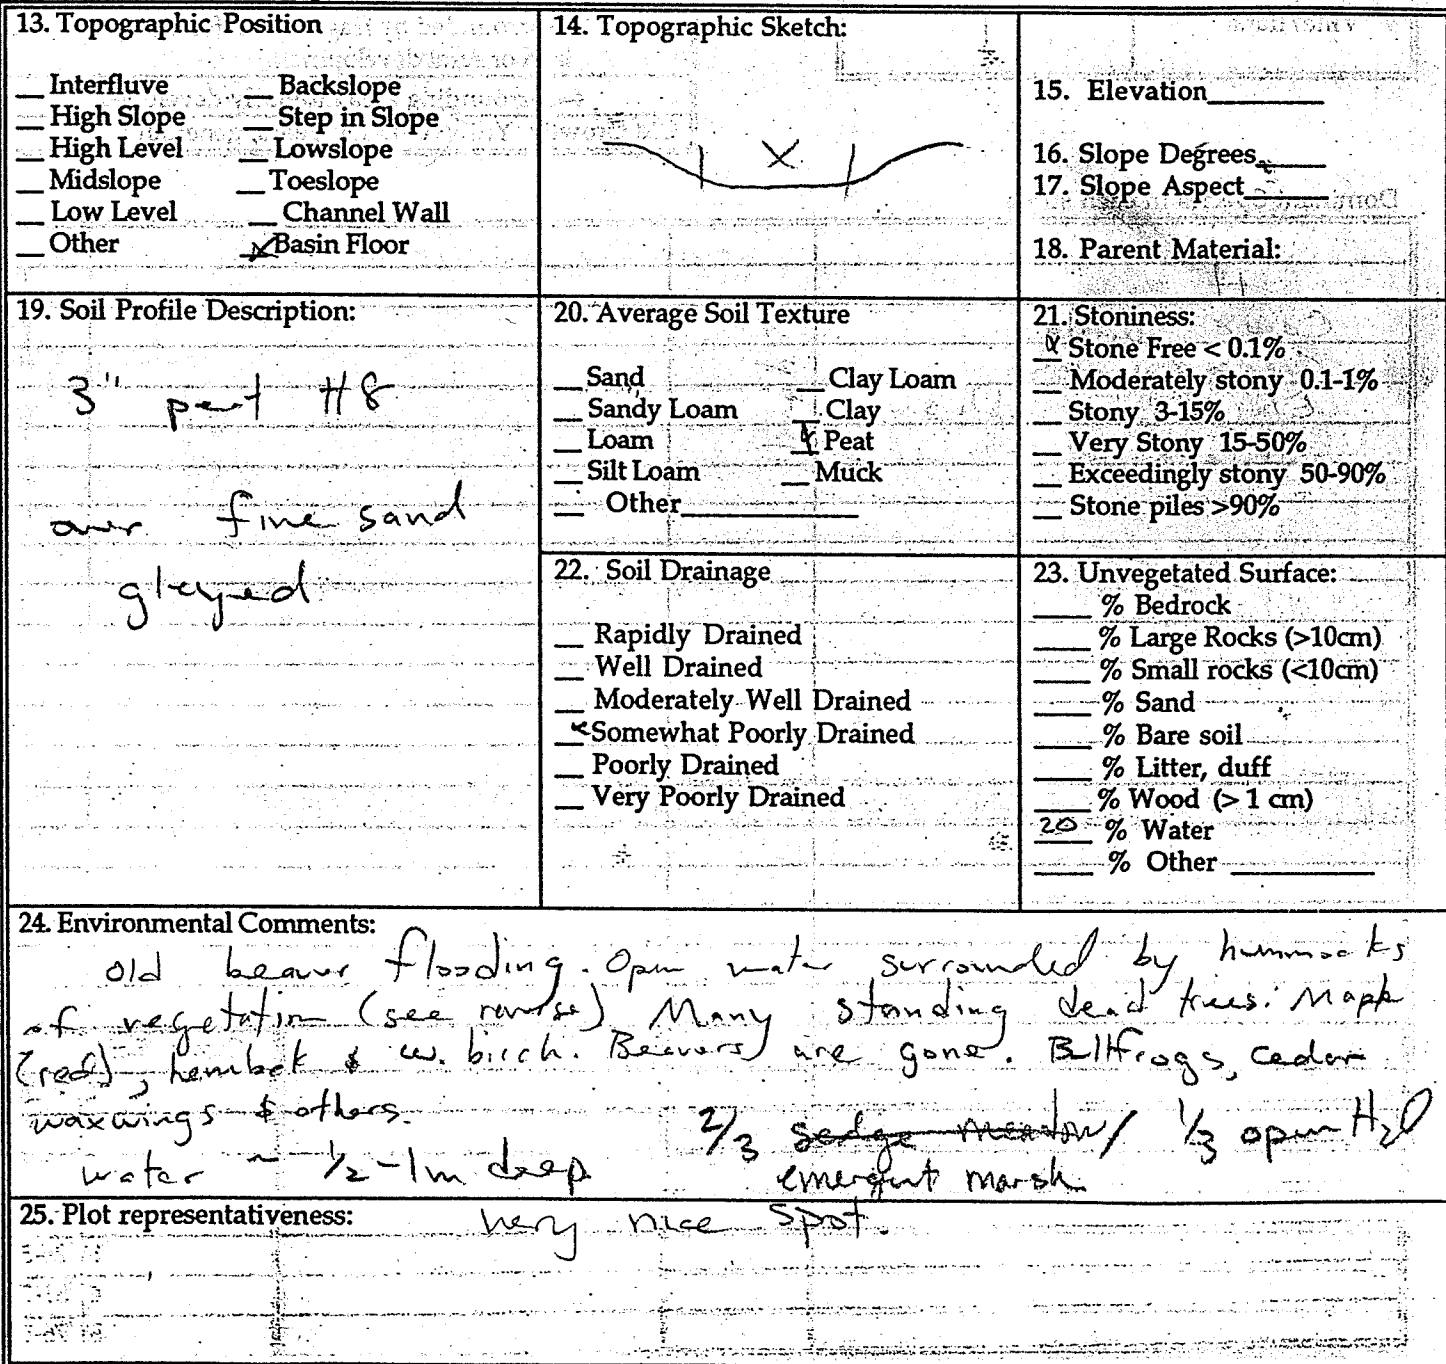 13. Topographic Position
__ Interfluve __ Backslope
__ High Slope __ Step in Slope
__ High Level __ Lowslope
__ Midslope __ Toeslope
__ Low Level __ Channel Wall
__ Other X Basin Floor
14. Topographic Sketch:
X
15. Elevation______
16. Slope Degrees______
17. Slope Aspect______
18. Parent Material:
19. Soil Profile Description:
3" peat H8
over fine sand
gleyed
20. Average Soil Texture
__ Sand __ Clay Loam
__ Sandy Loam __ Clay
__ Loam X Peat
__ Silt Loam __ Muck
__ Other__________
21. Stoniness:
X Stone Free < 0.1%
__ Moderately stony 0.1-1%
__ Stony 3-15%
__ Very Stony 15-50%
__ Exceedingly stony 50-90%
__ Stone piles >90%
22. Soil Drainage
__ Rapidly Drained
__ Well Drained
__ Moderately Well Drained
X Somewhat Poorly Drained
__ Poorly Drained
__ Very Poorly Drained
23. Unvegetated Surface:
____ % Bedrock
____ % Large Rocks (>10cm)
____ % Small rocks (<10cm)
____ % Sand
____ % Bare soil
____ % Litter, duff
____ % Wood (> 1 cm)
20 % Water
____ % Other __________
24. Environmental Comments:
old beaver flooding. Open water surrounded by hummocks
of vegetation (see reverse) Many standing dead trees: Maple
(red), hemlock & w. birch. Beavers are gone. Bullfrogs, cedar
waxwings & others.
2/3 sedge meadow / 1/3 open H2O
water ~ 1/2 - 1m deep emergent marsh
25. Plot representativeness: very nice spot.